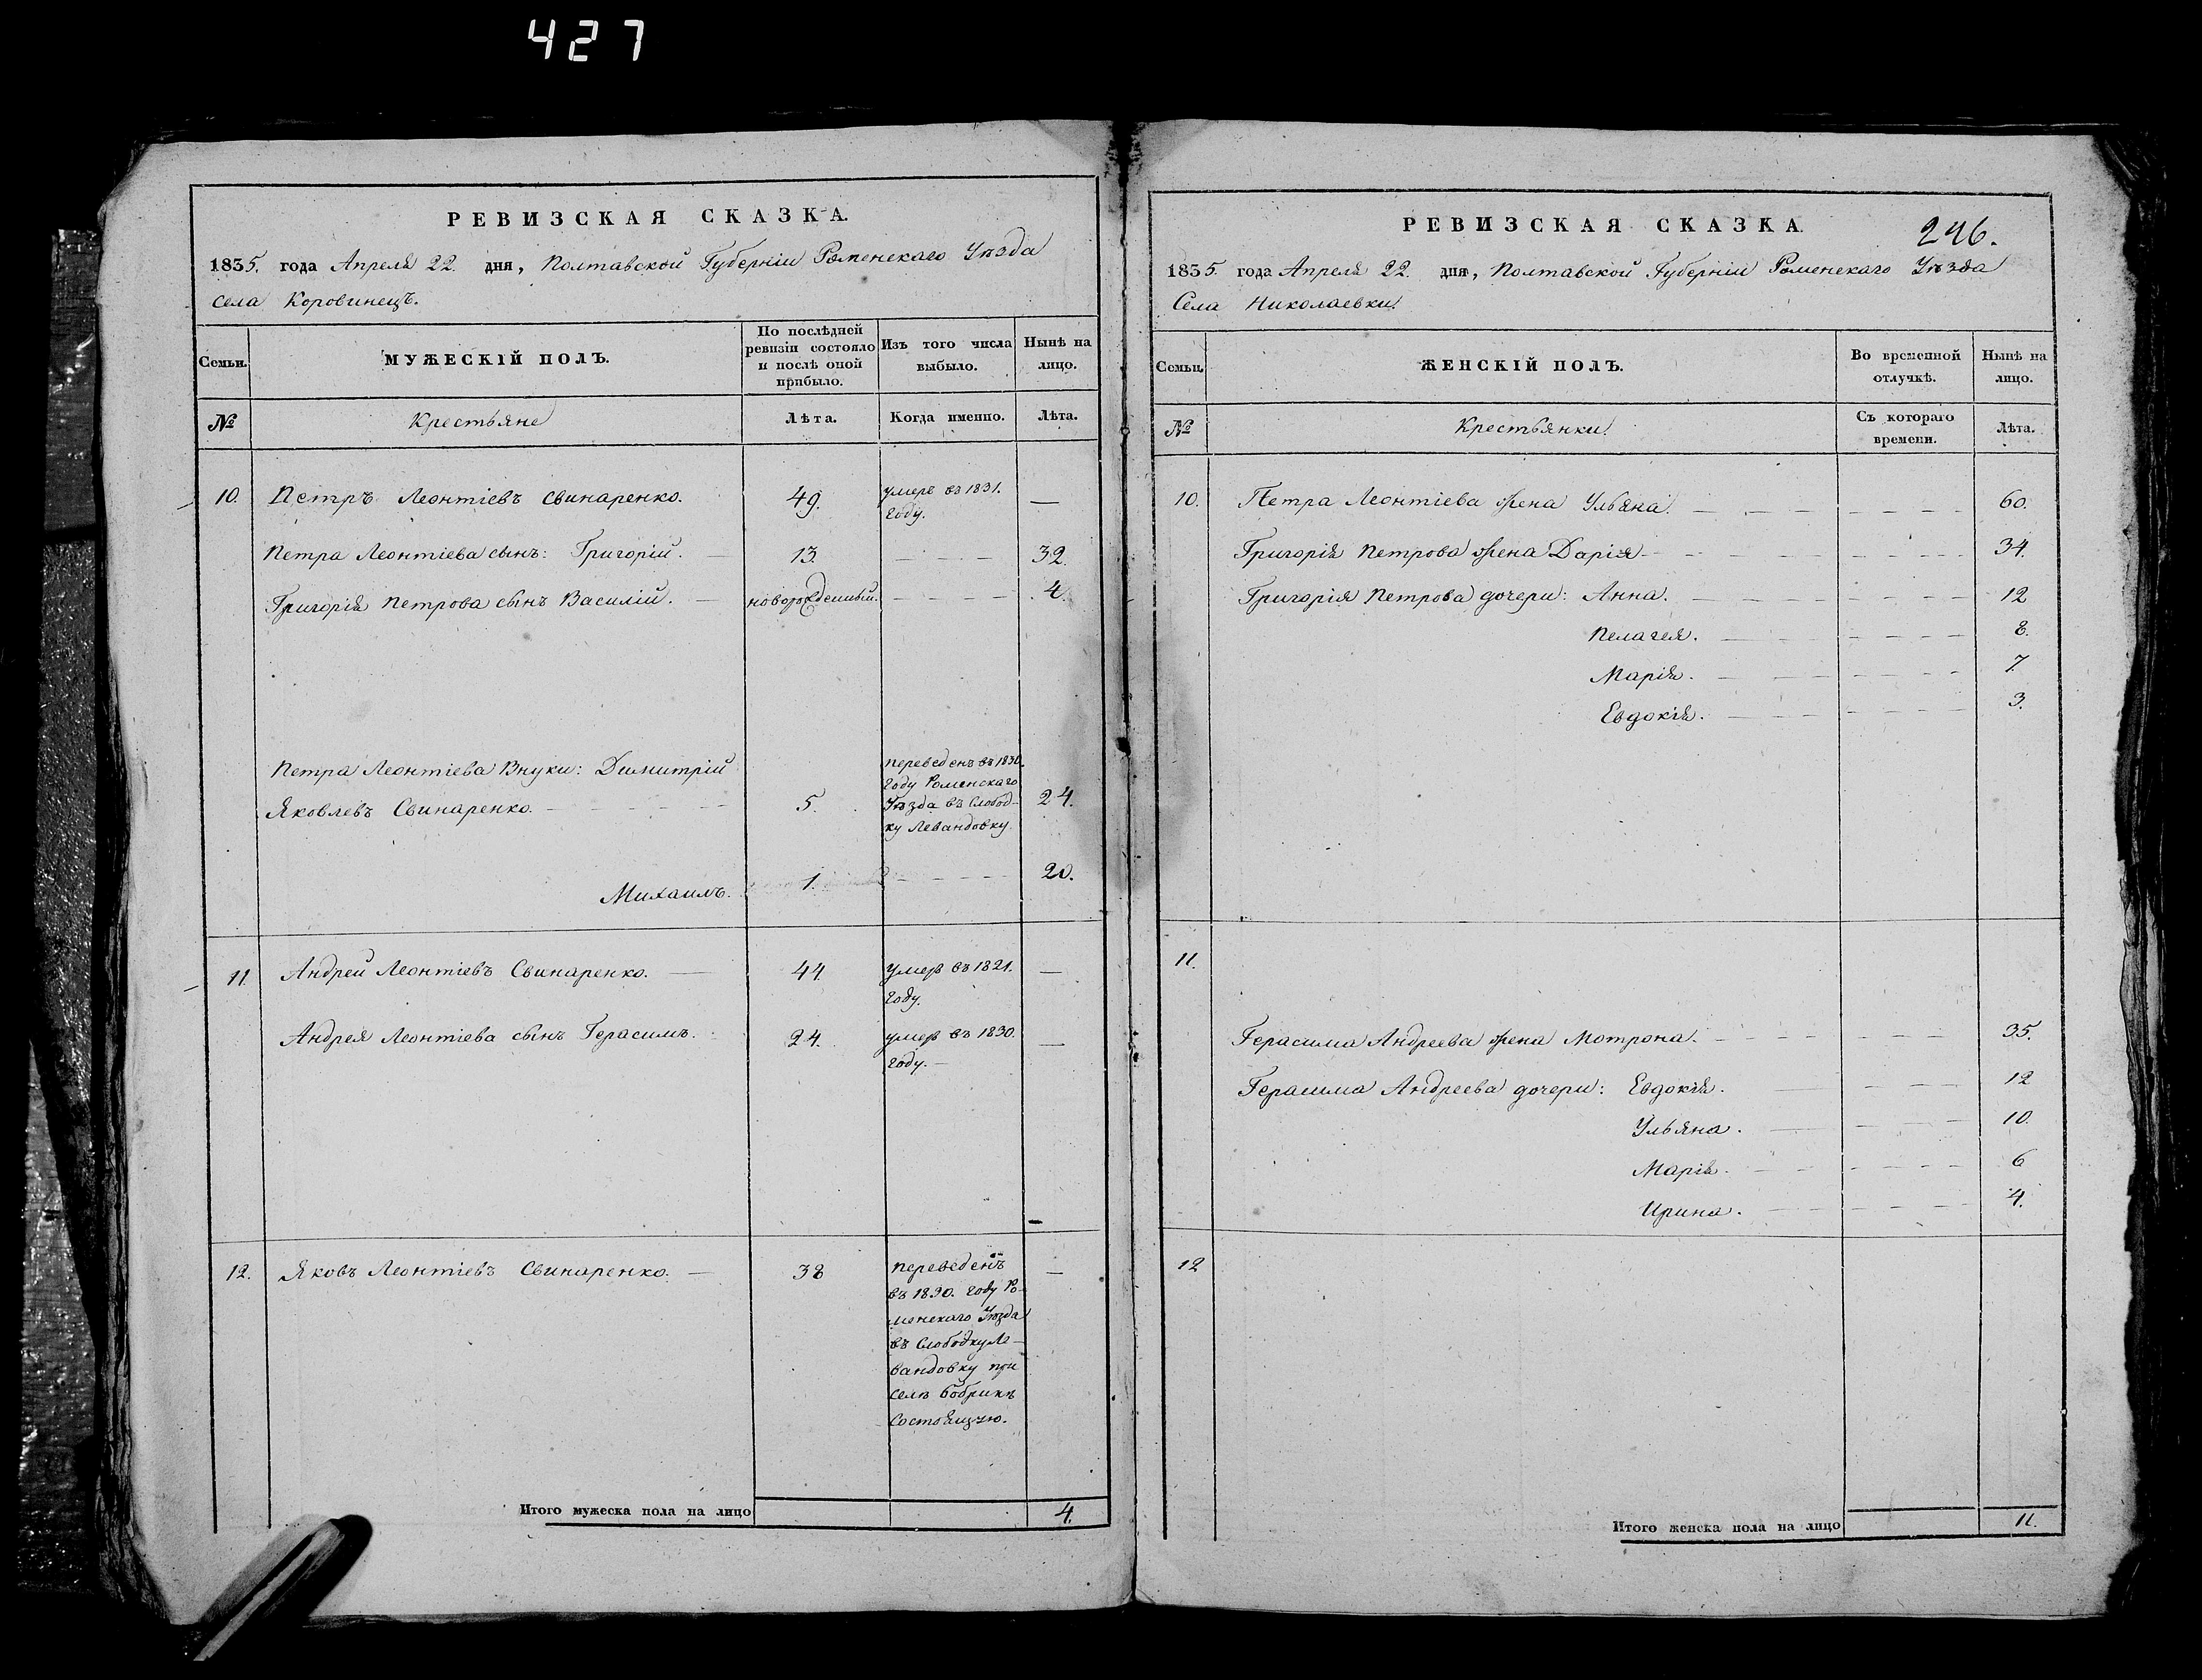 427
РЕВИЗСКАЯ СКАЗКА.
1835. года Апреля 22. дня, Полтавской Губернiи Роменскаго Уѣзда
села Коровинецъ.
Семьи.
МУЖЕСКIЙ ПОЛЪ.
По послѣдней
ревизiи состояло
и послѣ оной
прибыло.
Изъ того числа
выбыло.
Нынѣ на
лицо.
№
Крестьяне
Лѣта.
Когда именно.
Лѣта.
10. Петръ Леонтiевъ Свинаренко. 49. умеръ въ 1831. —
году.
Петра Леонтiева сынъ: Григорiй. 13. 32.
Григорiя Петрова сынъ Василiй. новорожденный. 4.
Петра Леонтiева Внуки: Димитрiй переведенъ въ 1830.
году Роменскаго
Яковлевъ Свинаренко. 5. Уѣзда въ Слобод- 24.
ку Левандовку
Михаилъ. 1. 20.
11. Андрей Леонтiевъ Свинаренко. 44. умеръ въ 1821. —
году.
Андрея Леонтiева сынъ Герасимъ. 24. умеръ въ 1830. —
году.
12. Яковъ Леонтiевъ Свинаренко. 38 переведенъ —
въ 1830. году Ро-
менскаго Уѣзда
въ Слободку Ле-
вандовку при
селѣ Бобрикѣ
состоящую.
Итого мужеска пола на лицо 4.
РЕВИЗСКАЯ СКАЗКА.
246.
1835. года Апреля 22. дня, Полтавской Губернiи Роменскаго Уѣзда
Села Николаевки.
Семьи.
ЖЕНСКIЙ ПОЛЪ.
Во временной
отлучкѣ.
Нынѣ на
лицо.
№
Крестьянки.
Съ котораго
времени.
Лѣта.
10. Петра Леонтiева жена Ульяна. 60.
Григорiя Петрова жена Дарiя 34.
Григорiя Петрова дочери: Анна. 12
Пелагея. 8.
Марiя. 7.
Евдокiя. 3.
11.
Герасима Андреева жена Мотрона. 35.
Герасима Андреева дочери: Евдокiя. 12
Ульяна. 10.
Марiя. 6
Ирина. 4.
12
Итого женска пола на лицо 11.